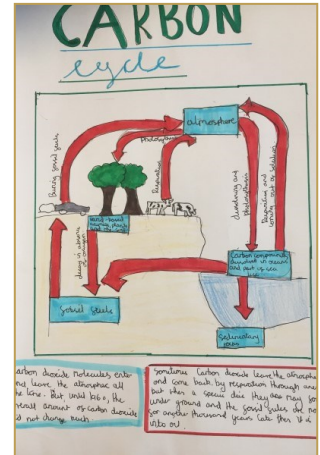 CARBON
cycle
atmosphere
burning fossil fuels
photosynthesis
Respiration
dissolving and
photosynthesis
Respiration and
coming out of solution
decay in absence
of oxygen
fossil fuels
Carbon compounds
dissolved in ocean
and part of sea
Sedimentary
rocks
carbon dioxide molecules enter
and leave the atmosphere all
the time. But until 1860, the
overall amount of carbon dioxide
did not change much
Sometimes Carbon dioxide leave the atmosphere
and come back by respiration through
but when a species dies they are
under ground and the fossil fuels are not
for another thousand years late then it is
into oil